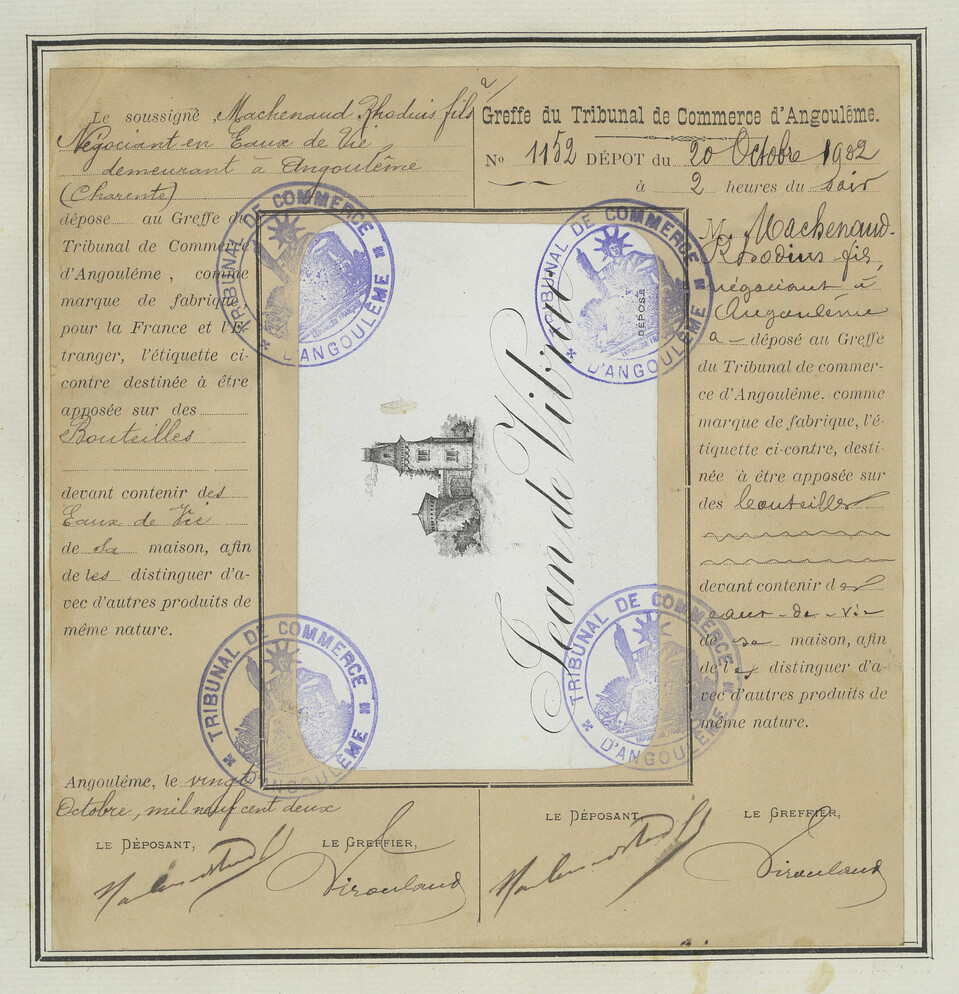 Le soussigné, Machenaud Rhodius fils
Négociant en Eaux de Vie
demeurant à Angoulême
(Charente)
dépose au Greffe du
Tribunal de Commerce
d'Angoulême, comme
marque de fabrique,
pour la France et l'E-
tranger, l'étiquette ci-
contre destinée à être
apposée sur des
Bouteilles
devant contenir des
Eaux de Vie
de sa maison, afin
de les distinguer d'a-
vec d'autres produits de
même nature.
Angoulême, le vingt
Octobre, mil neuf cent deux
LE DÉPOSANT, LE GREFFIER,
Greffe du Tribunal de Commerce d'Angoulême.
No 1152 DÉPOT du 20 Octobre 1902
à 2 heures du soir
M. Machenaud-
Rhodius fils,
négociant à
Angoulême
a déposé au Greffe
du Tribunal de commer-
ce d'Angoulême. comme
marque de fabrique, l'é-
tiquette ci-contre, desti-
née à être apposée sur
des bouteilles
devant contenir des
eaux-de-vie
de sa maison, afin
de les distinguer d'a-
vec d'autres produits de
même nature.
LE DÉPOSANT, LE GREFFIER,
Jean de Vibrac
DÉPOSÉ
TRIBUNAL DE COMMERCE
D'ANGOULÊME
TRIBUNAL DE COMMERCE
D'ANGOULÊME
TRIBUNAL DE COMMERCE
D'ANGOULÊME
TRIBUNAL DE COMMERCE
D'ANGOULÊME